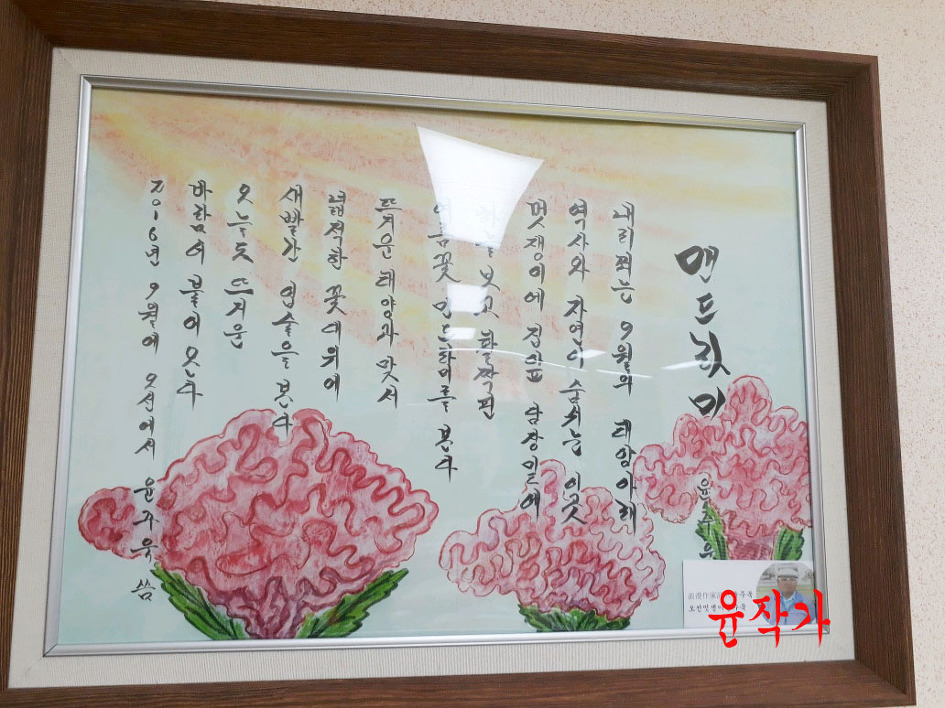 맨드라미
윤주욱
내리쬐는 9월의 태양아래
역사와 자연이 숨쉬는 이곳
멋쟁이에 담장밑에
보고 활짝핀
여름꽃 맨드라미를 본다
뜨거운 태양과 맞서
넓적한 꽃대위에
새빨간 입술을 본다
오늘도 뜨거운
바람이 불어 온다
2016년 9월에 윤주욱 씀
윤작가